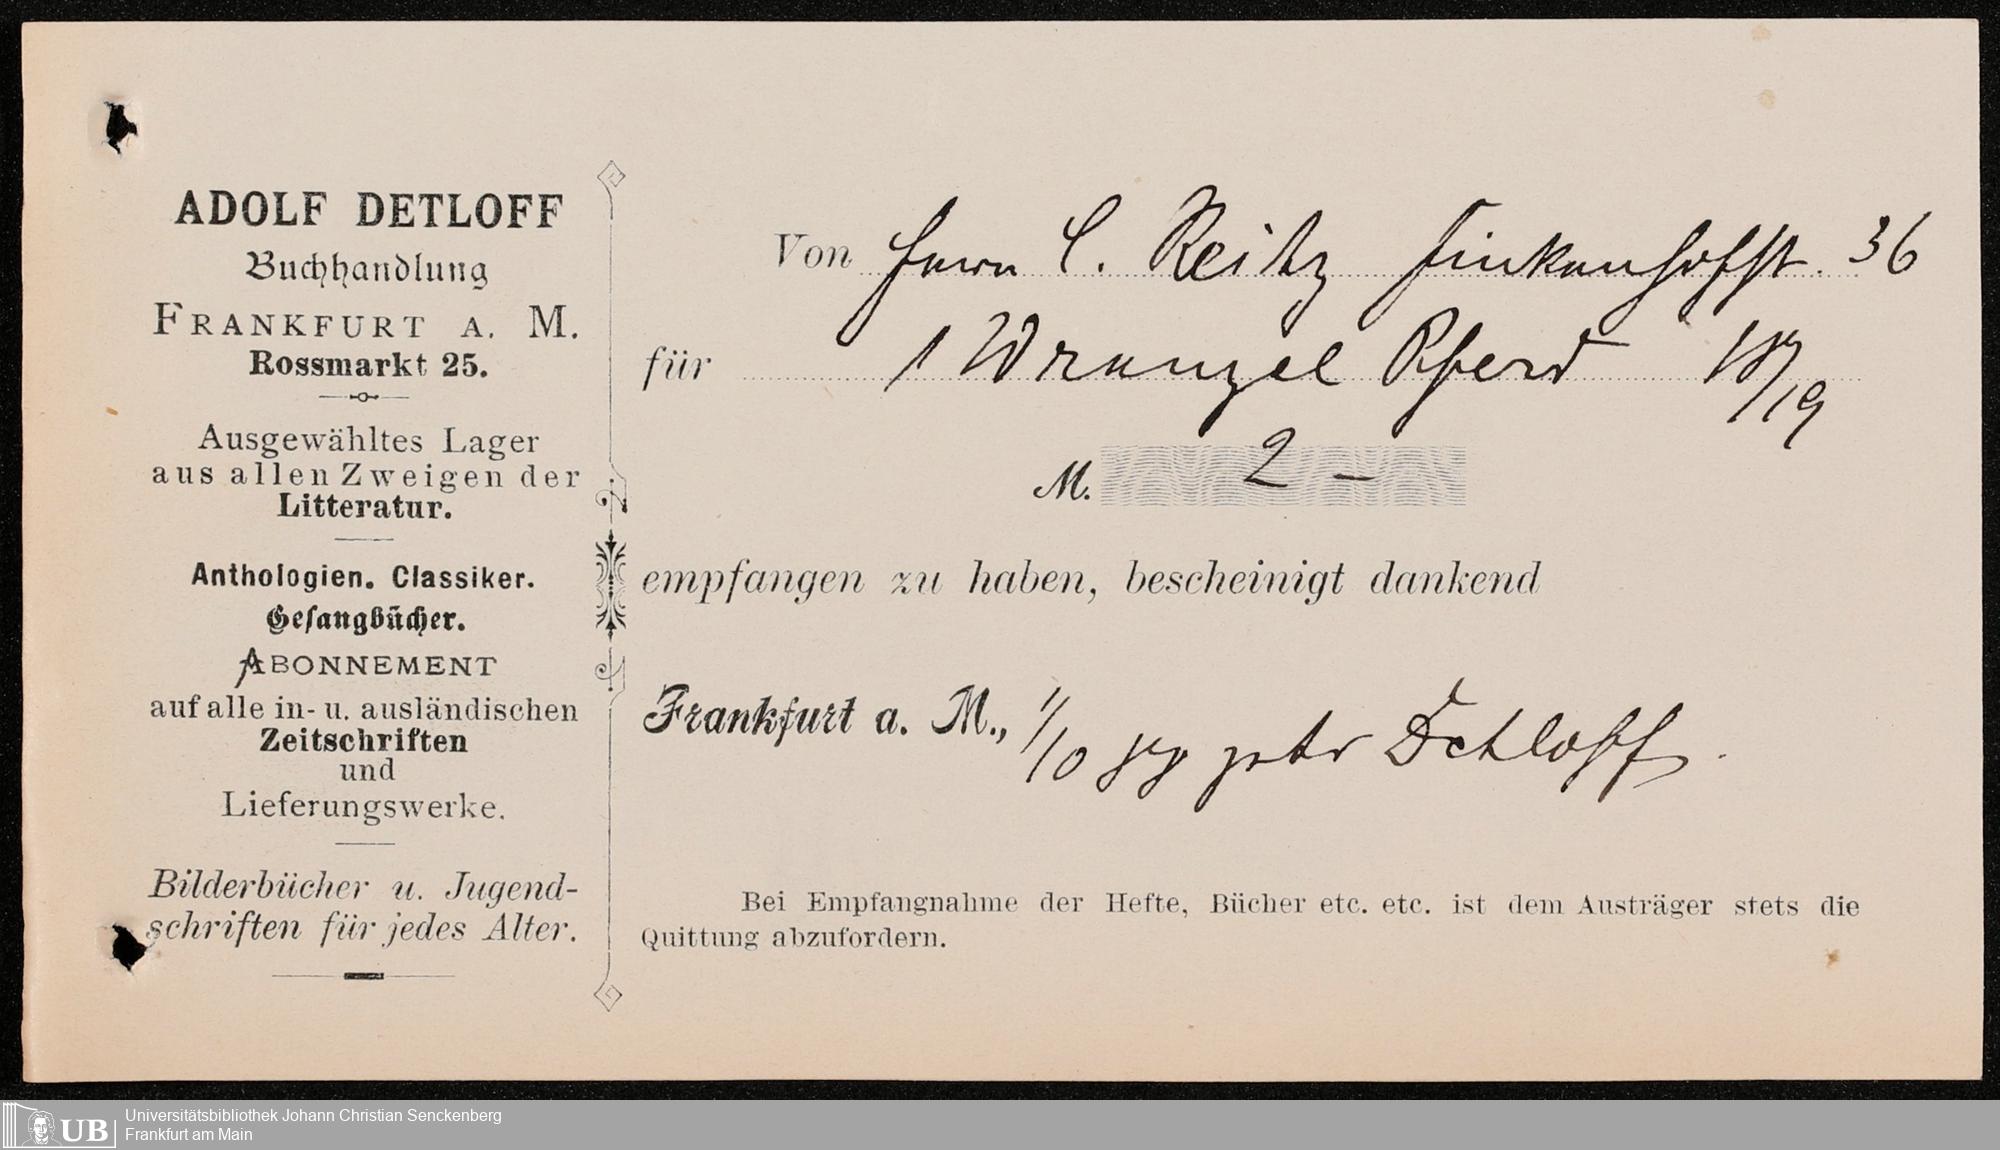 ADOLF DETLOFF
Buchhandlung
FRANKFURT A. M.
Rossmarkt 25.
Ausgewähltes Lager
aus allen Zweigen der
Litteratur.
Anthologien. Classiker.
Gesangbücher.
ABONNEMENT
auf alle in- u. ausländischen
Zeitschriften
und
Lieferungswerke.
Bilderbücher u. Jugend-
schriften für jedes Alter.
Von Herrn C. Reitz Finkenhofst. 36
für 1 Wrangel Pferd 18/19
M. 2 –
empfangen zu haben, bescheinigt dankend
Frankfurt a. M., 1/10 Detloff.
Bei Empfangnahme der Hefte, Bücher etc. etc. ist dem Austräger stets die
Quittung abzufordern.
UB
Universitätsbibliothek Johann Christian Senckenberg
Frankfurt am Main